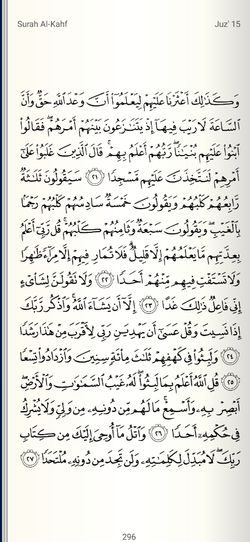 Surah Al-Kahf Juz' 15
وَكَذَٰلِكَ أَعْثَرْنَا عَلَيْهِمْ لِيَعْلَمُوٓا۟ أَنَّ وَعْدَ ٱللَّهِ حَقٌّ وَأَنَّ
ٱلسَّاعَةَ لَا رَيْبَ فِيهَآ إِذْ يَتَنَٰزَعُونَ بَيْنَهُمْ أَمْرَهُمْ ۖ فَقَالُوا۟
ٱبْنُوا۟ عَلَيْهِم بُنْيَٰنًا ۖ رَّبُّهُمْ أَعْلَمُ بِهِمْ ۚ قَالَ ٱلَّذِينَ غَلَبُوا۟ عَلَىٰٓ
أَمْرِهِمْ لَنَتَّخِذَنَّ عَلَيْهِم مَّسْجِدًا ٢١ سَيَقُولُونَ ثَلَٰثَةٌ
رَّابِعُهُمْ كَلْبُهُمْ وَيَقُولُونَ خَمْسَةٌ سَادِسُهُمْ كَلْبُهُمْ رَجْمًۢا
بِٱلْغَيْبِ ۖ وَيَقُولُونَ سَبْعَةٌ وَثَامِنُهُمْ كَلْبُهُمْ ۚ قُل رَّبِّىٓ أَعْلَمُ
بِعِدَّتِهِم مَّا يَعْلَمُهُمْ إِلَّا قَلِيلٌ ۗ فَلَا تُمَارِ فِيهِمْ إِلَّا مِرَآءً ظَٰهِرًا
وَلَا تَسْتَفْتِ فِيهِم مِّنْهُمْ أَحَدًا ٢٢ وَلَا تَقُولَنَّ لِشَا۟ىْءٍ
إِنِّى فَاعِلٌ ذَٰلِكَ غَدًا ٢٣ إِلَّآ أَن يَشَآءَ ٱللَّهُ ۚ وَٱذْكُر رَّبَّكَ
إِذَا نَسِيتَ وَقُلْ عَسَىٰٓ أَن يَهْدِيَنِ رَبِّى لِأَقْرَبَ مِنْ هَٰذَا رَشَدًا
٢٤ وَلَبِثُوا۟ فِى كَهْفِهِمْ ثَلَٰثَ مِا۟ئَةٍ سِنِينَ وَٱزْدَادُوا۟ تِسْعًا
٢٥ قُلِ ٱللَّهُ أَعْلَمُ بِمَا لَبِثُوا۟ ۖ لَهُۥ غَيْبُ ٱلسَّمَٰوَٰتِ وَٱلْأَرْضِ ۖ
أَبْصِرْ بِهِۦ وَأَسْمِعْ ۚ مَا لَهُم مِّن دُونِهِۦ مِن وَلِىٍّ وَلَا يُشْرِكُ
فِى حُكْمِهِۦٓ أَحَدًا ٢٦ وَٱتْلُ مَآ أُوحِىَ إِلَيْكَ مِن كِتَابِ
رَبِّكَ ۖ لَا مُبَدِّلَ لِكَلِمَٰتِهِۦ وَلَن تَجِدَ مِن دُونِهِۦ مُلْتَحَدًا ٢٧
296